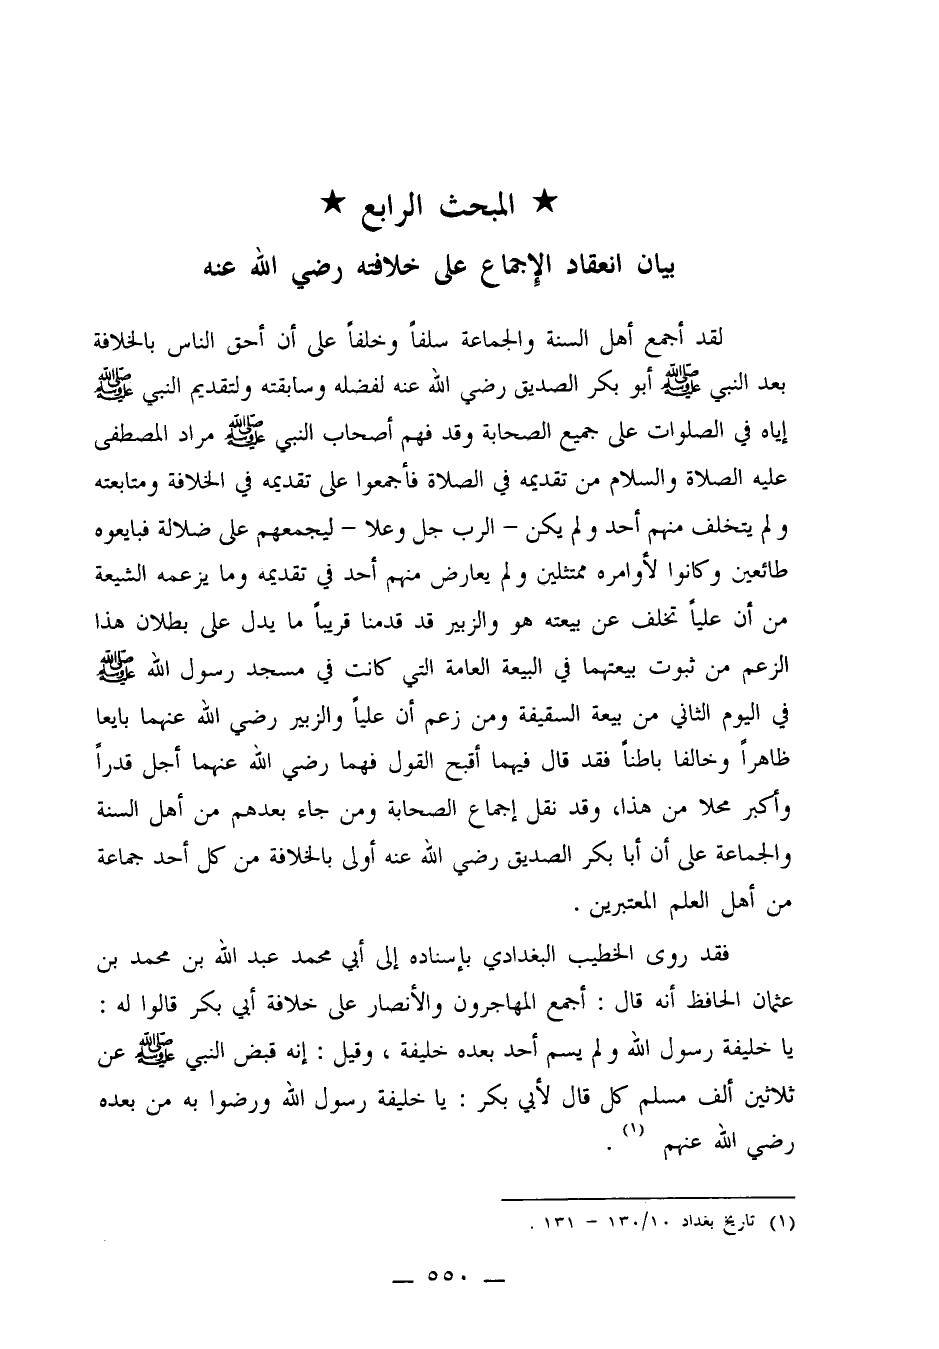 ★ المبحث الرابع ★
بيان انعقاد الإجماع على خلافته رضي الله عنه
لقد أجمع أهل السنة والجماعة سلفاً وخلفاً على أن أحق الناس بالخلافة
بعد النبي ﷺ أبو بكر الصديق رضي الله عنه لفضله وسابقته ولتقديم النبي ﷺ
إياه في الصلوات على جميع الصحابة وقد فهم أصحاب النبي ﷺ مراد المصطفى
عليه الصلاة والسلام من تقديمه في الصلاة فأجمعوا على تقديمه في الخلافة ومتابعته
ولم يتخلف منهم أحد ولم يكن – الرب جل وعلا – ليجمعهم على ضلالة فبايعوه
طائعين وكانوا لأوامره ممتثلين ولم يعارض منهم أحد في تقديمه وما يزعمه الشيعة
من أن علياً تخلف عن بيعته هو والزبير قد قدمنا قريباً ما يدل على بطلان هذا
الزعم من ثبوت بيعتهما في البيعة العامة التي كانت في مسجد رسول الله ﷺ
في اليوم الثاني من بيعة السقيفة ومن زعم أن علياً والزبير رضي الله عنهما بايعا
ظاهراً وخالفا باطناً فقد قال فيهما أقبح القول فهما رضي الله عنهما أجل قدراً
وأكبر محلا من هذا، وقد نقل إجماع الصحابة ومن جاء بعدهم من أهل السنة
والجماعة على أن أبا بكر الصديق رضي الله عنه أولى بالخلافة من كل أحد جماعة
من أهل العلم المعتبرين .
فقد روى الخطيب البغدادي بإسناده إلى أبي محمد عبد الله بن محمد بن
عثمان الحافظ أنه قال : أجمع المهاجرون والأنصار على خلافة أبي بكر قالوا له :
يا خليفة رسول الله ولم يسم أحد بعده خليفة ، وقيل : إنه قبض النبي ﷺ عن
ثلاثين ألف مسلم كل قال لأبي بكر : يا خليفة رسول الله ورضوا به من بعده
رضي الله عنهم (١) .
(١) تاريخ بغداد ١٣٠/١٠ – ١٣١ .
— ٥٥٠ —